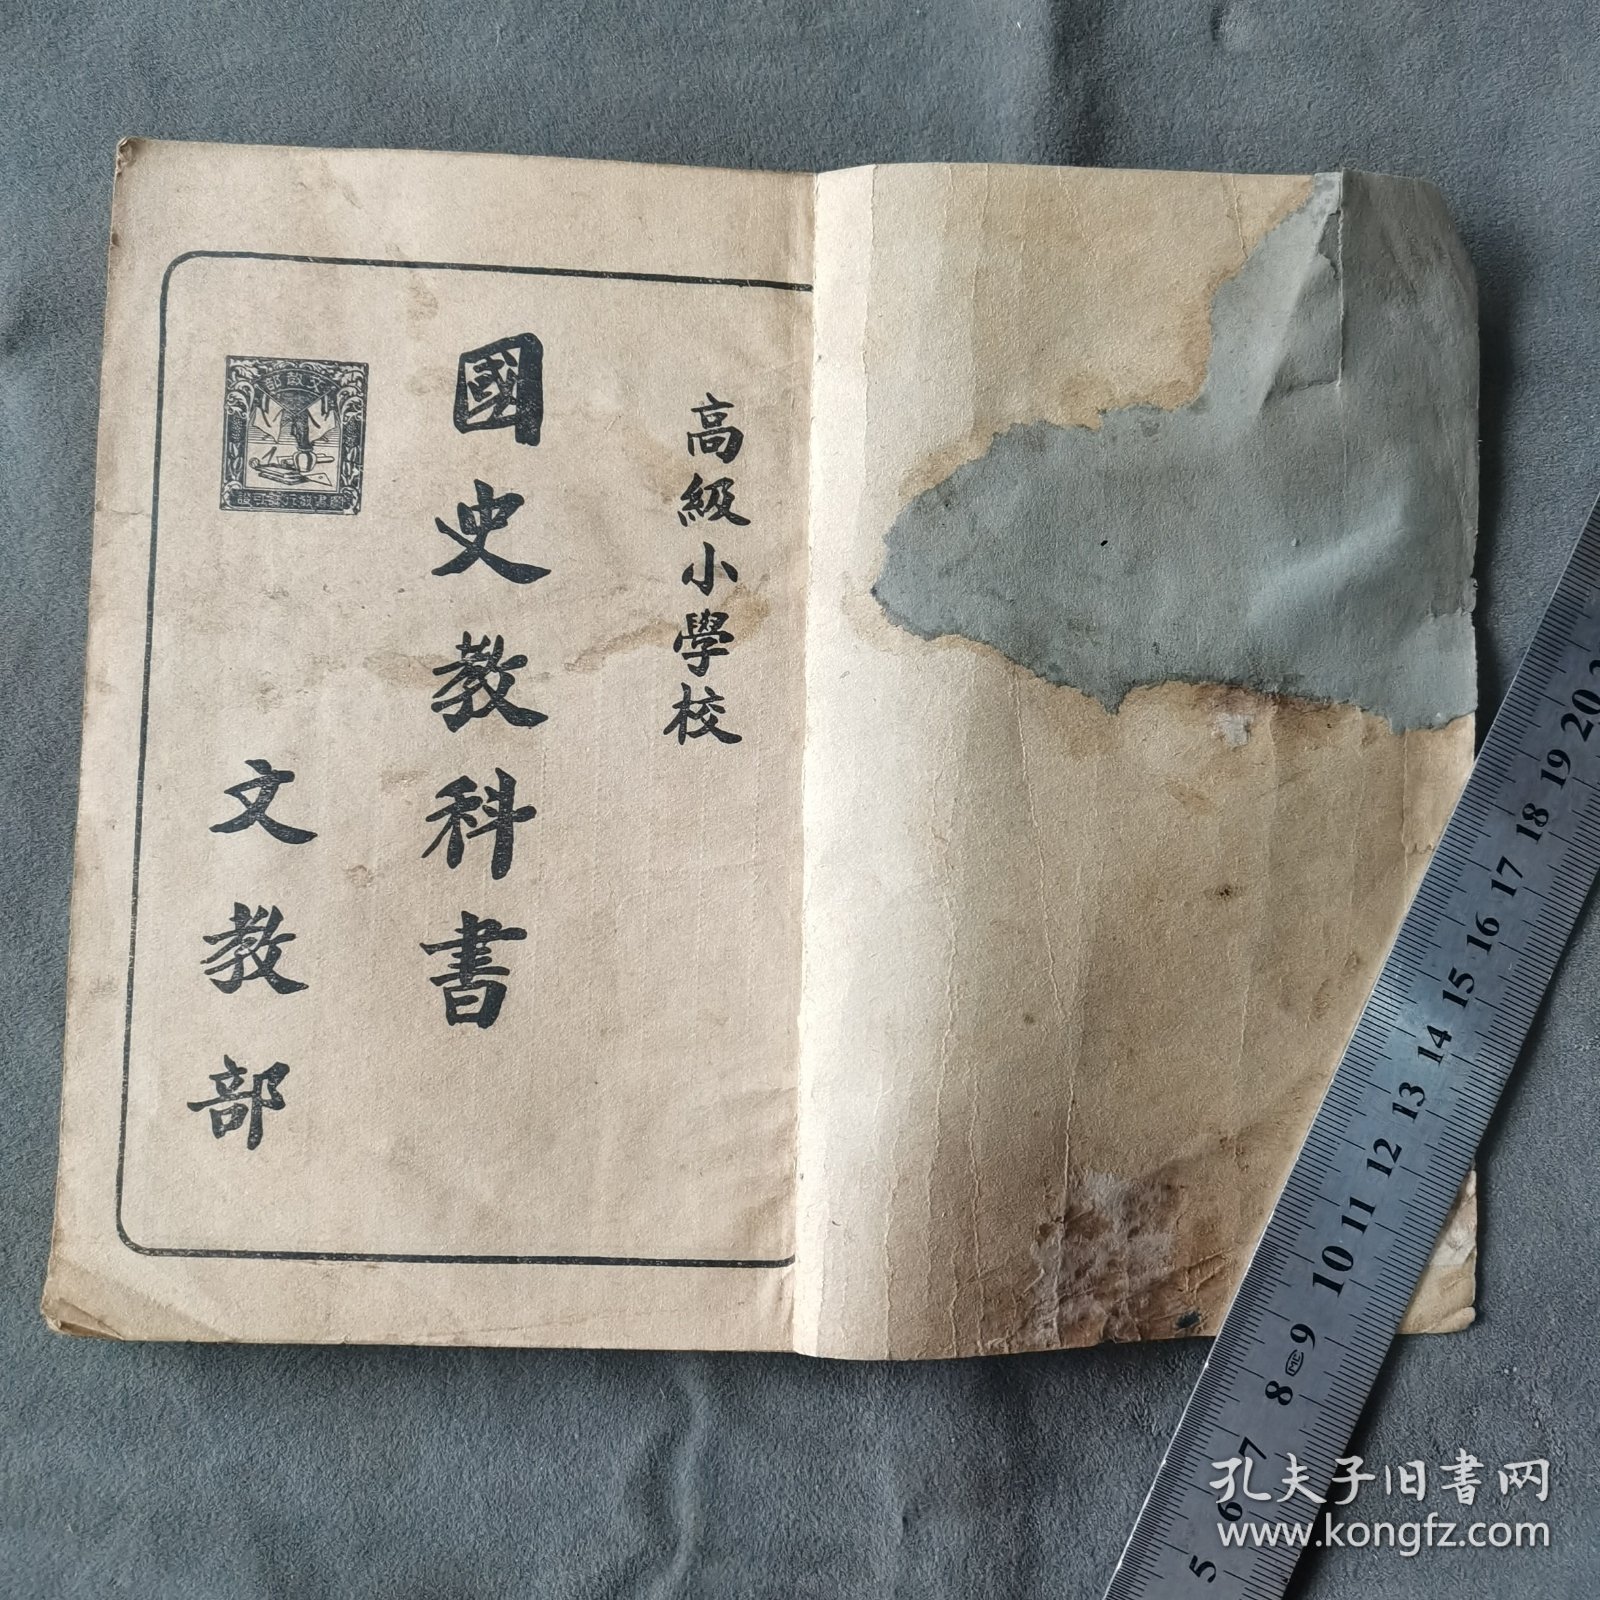 高級小學校
國史教科書
文教部
文教部
圖書發行許可證
20
19
18
17
16
15
14
13
12
11
10
9
8
7
6
5
孔夫子旧书网
www.kongfz.com